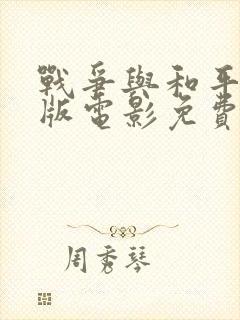 戰爭與和平
版電影免費
周秀琴